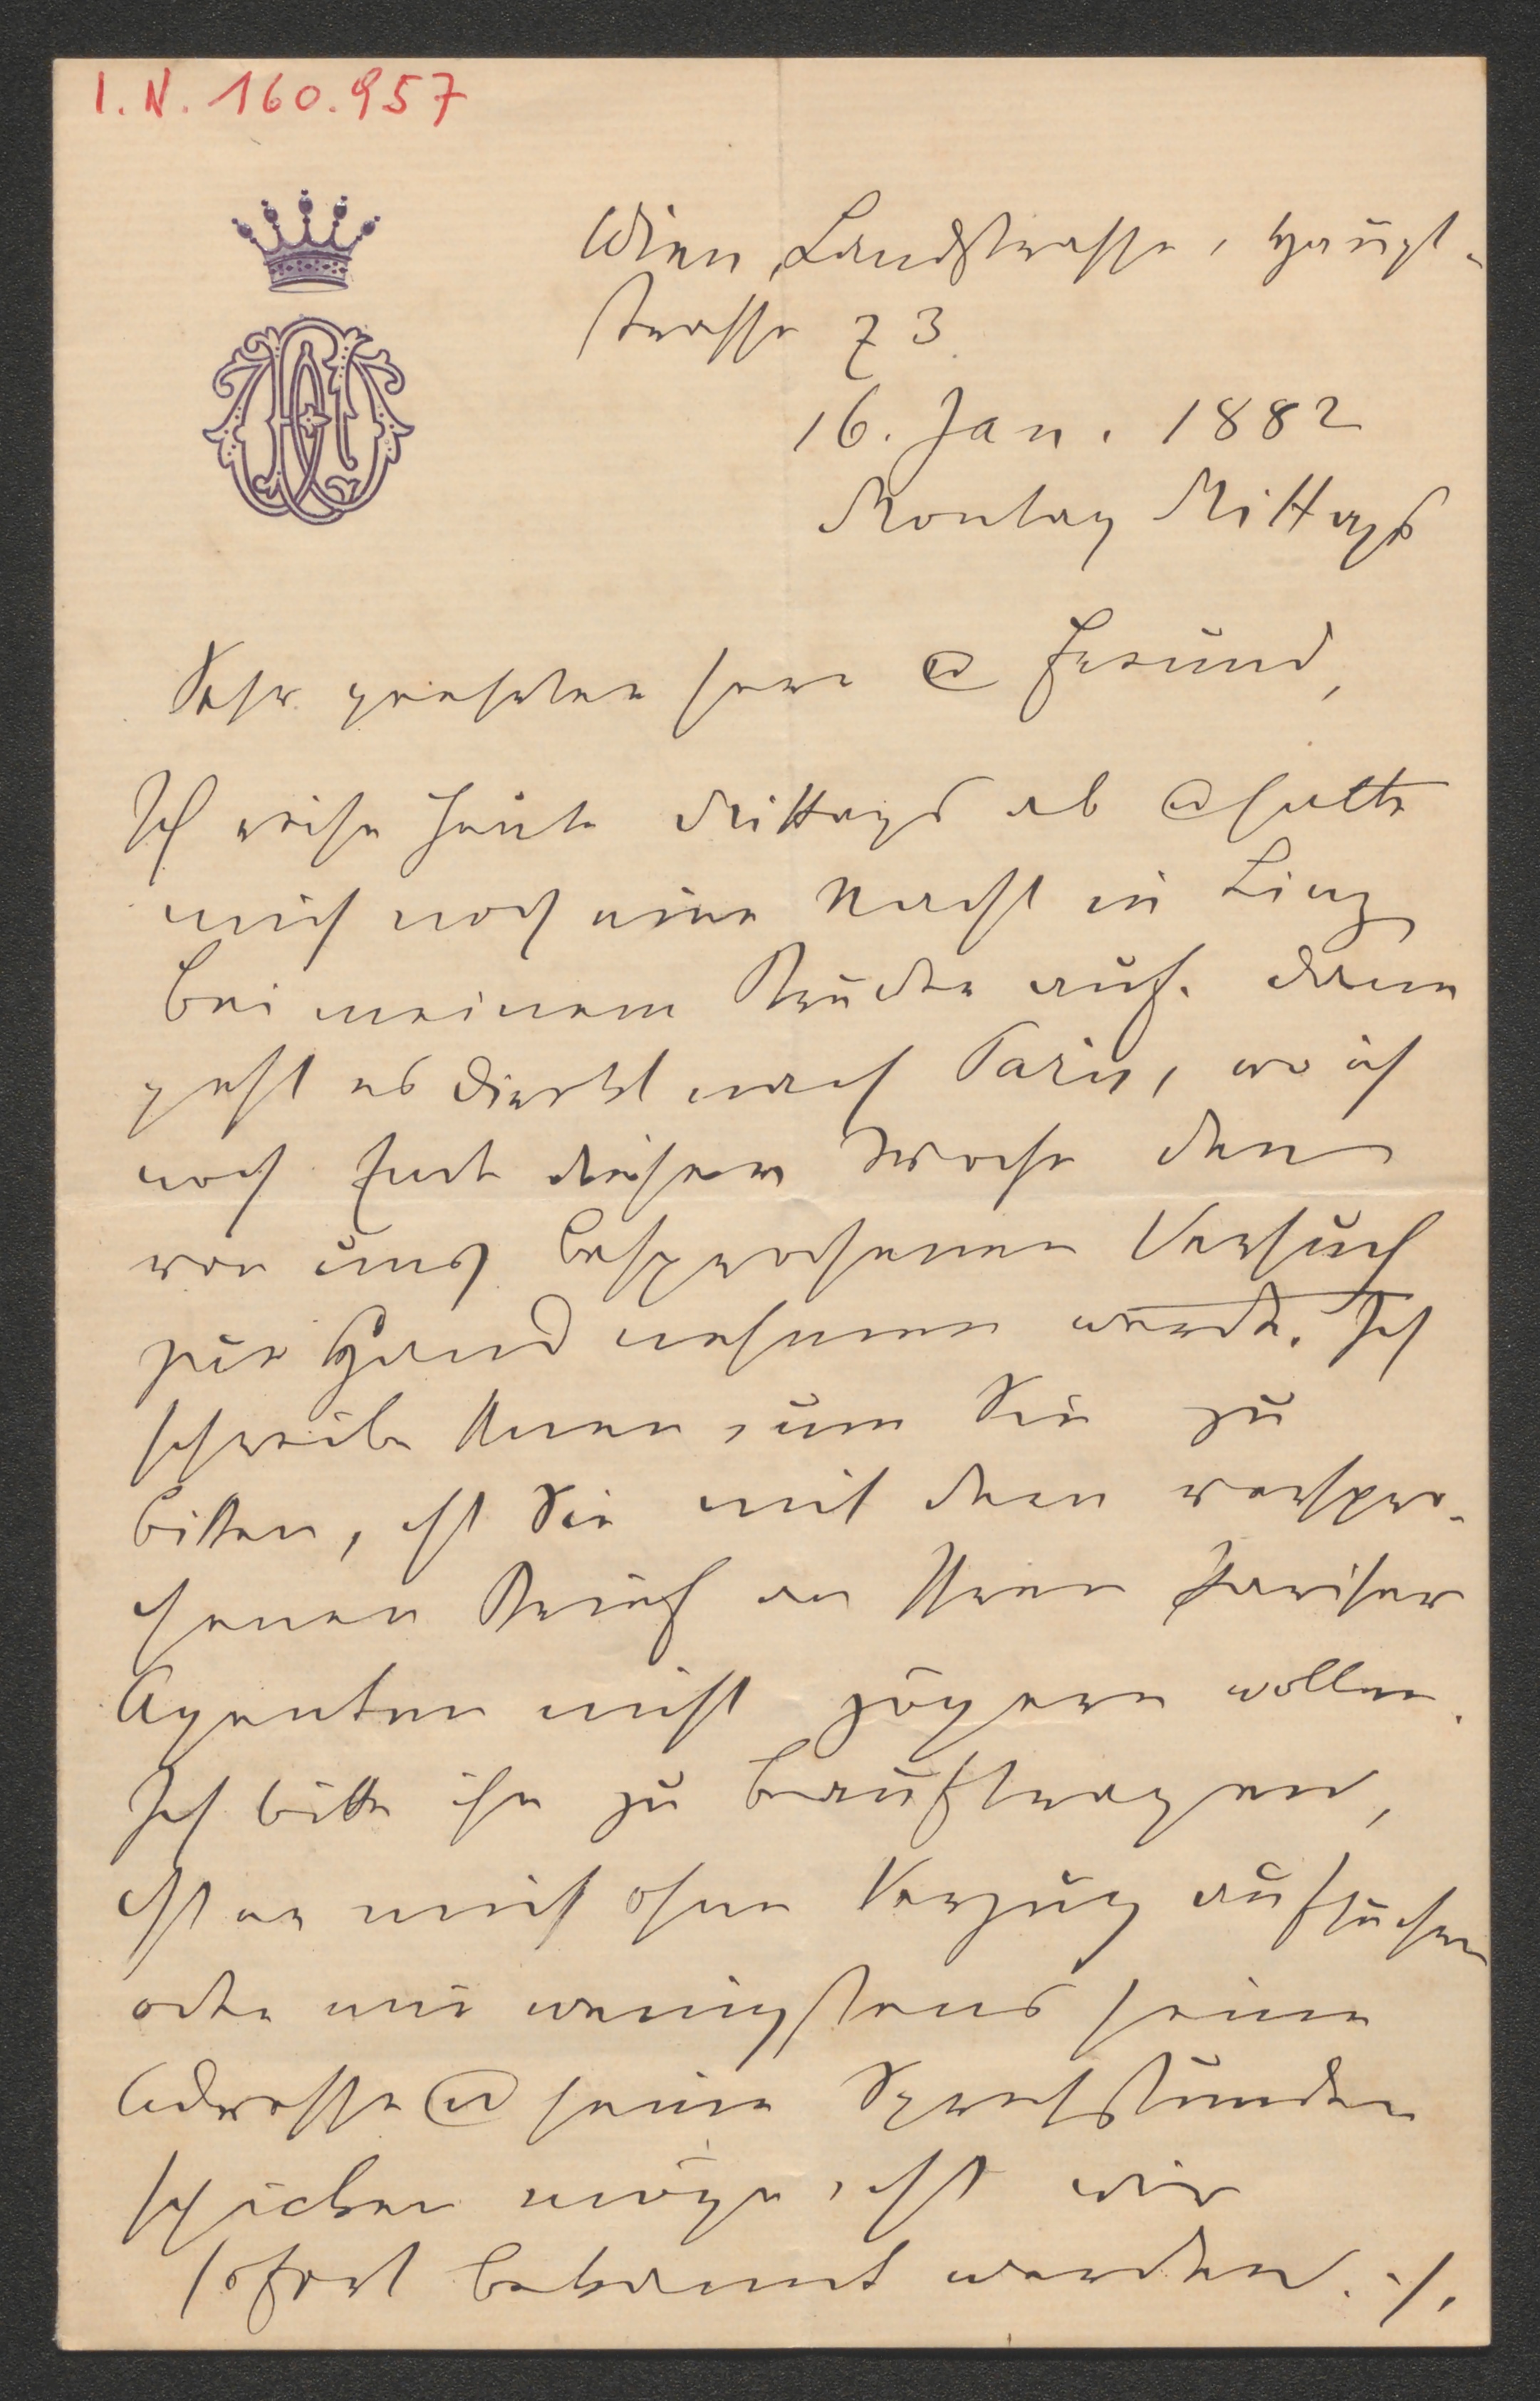 I. N. 160.957
Wien, Landstrasse, Haupt-
strasse 73
16. Jan. 1882
Montag Mittags
Sehr geehrter Herr & Freund,
Ich reise heute Mittags ab & halte
mich noch eine Nacht in Linz
bei meinem Bruder auf. Dann
geht es direkt nach Paris, wo ich
noch Ende dieser Woche den
von uns besprochenen Versuch
zur Hand nehmen werde. Ich
schreibe Ihnen, um Sie zu
bitten, dß Sie mit dem verspro-
chenen Brief an Ihren Pariser
Agenten nicht zögern wollen.
Ich bitte ihn zu beauftragen,
dß er mich ohne Verzug aufsuchen
oder mir wenigstens seine
Adresse & seine Sprechstunden
schicken möge, dß wir
sofort bekannt werden. ./.